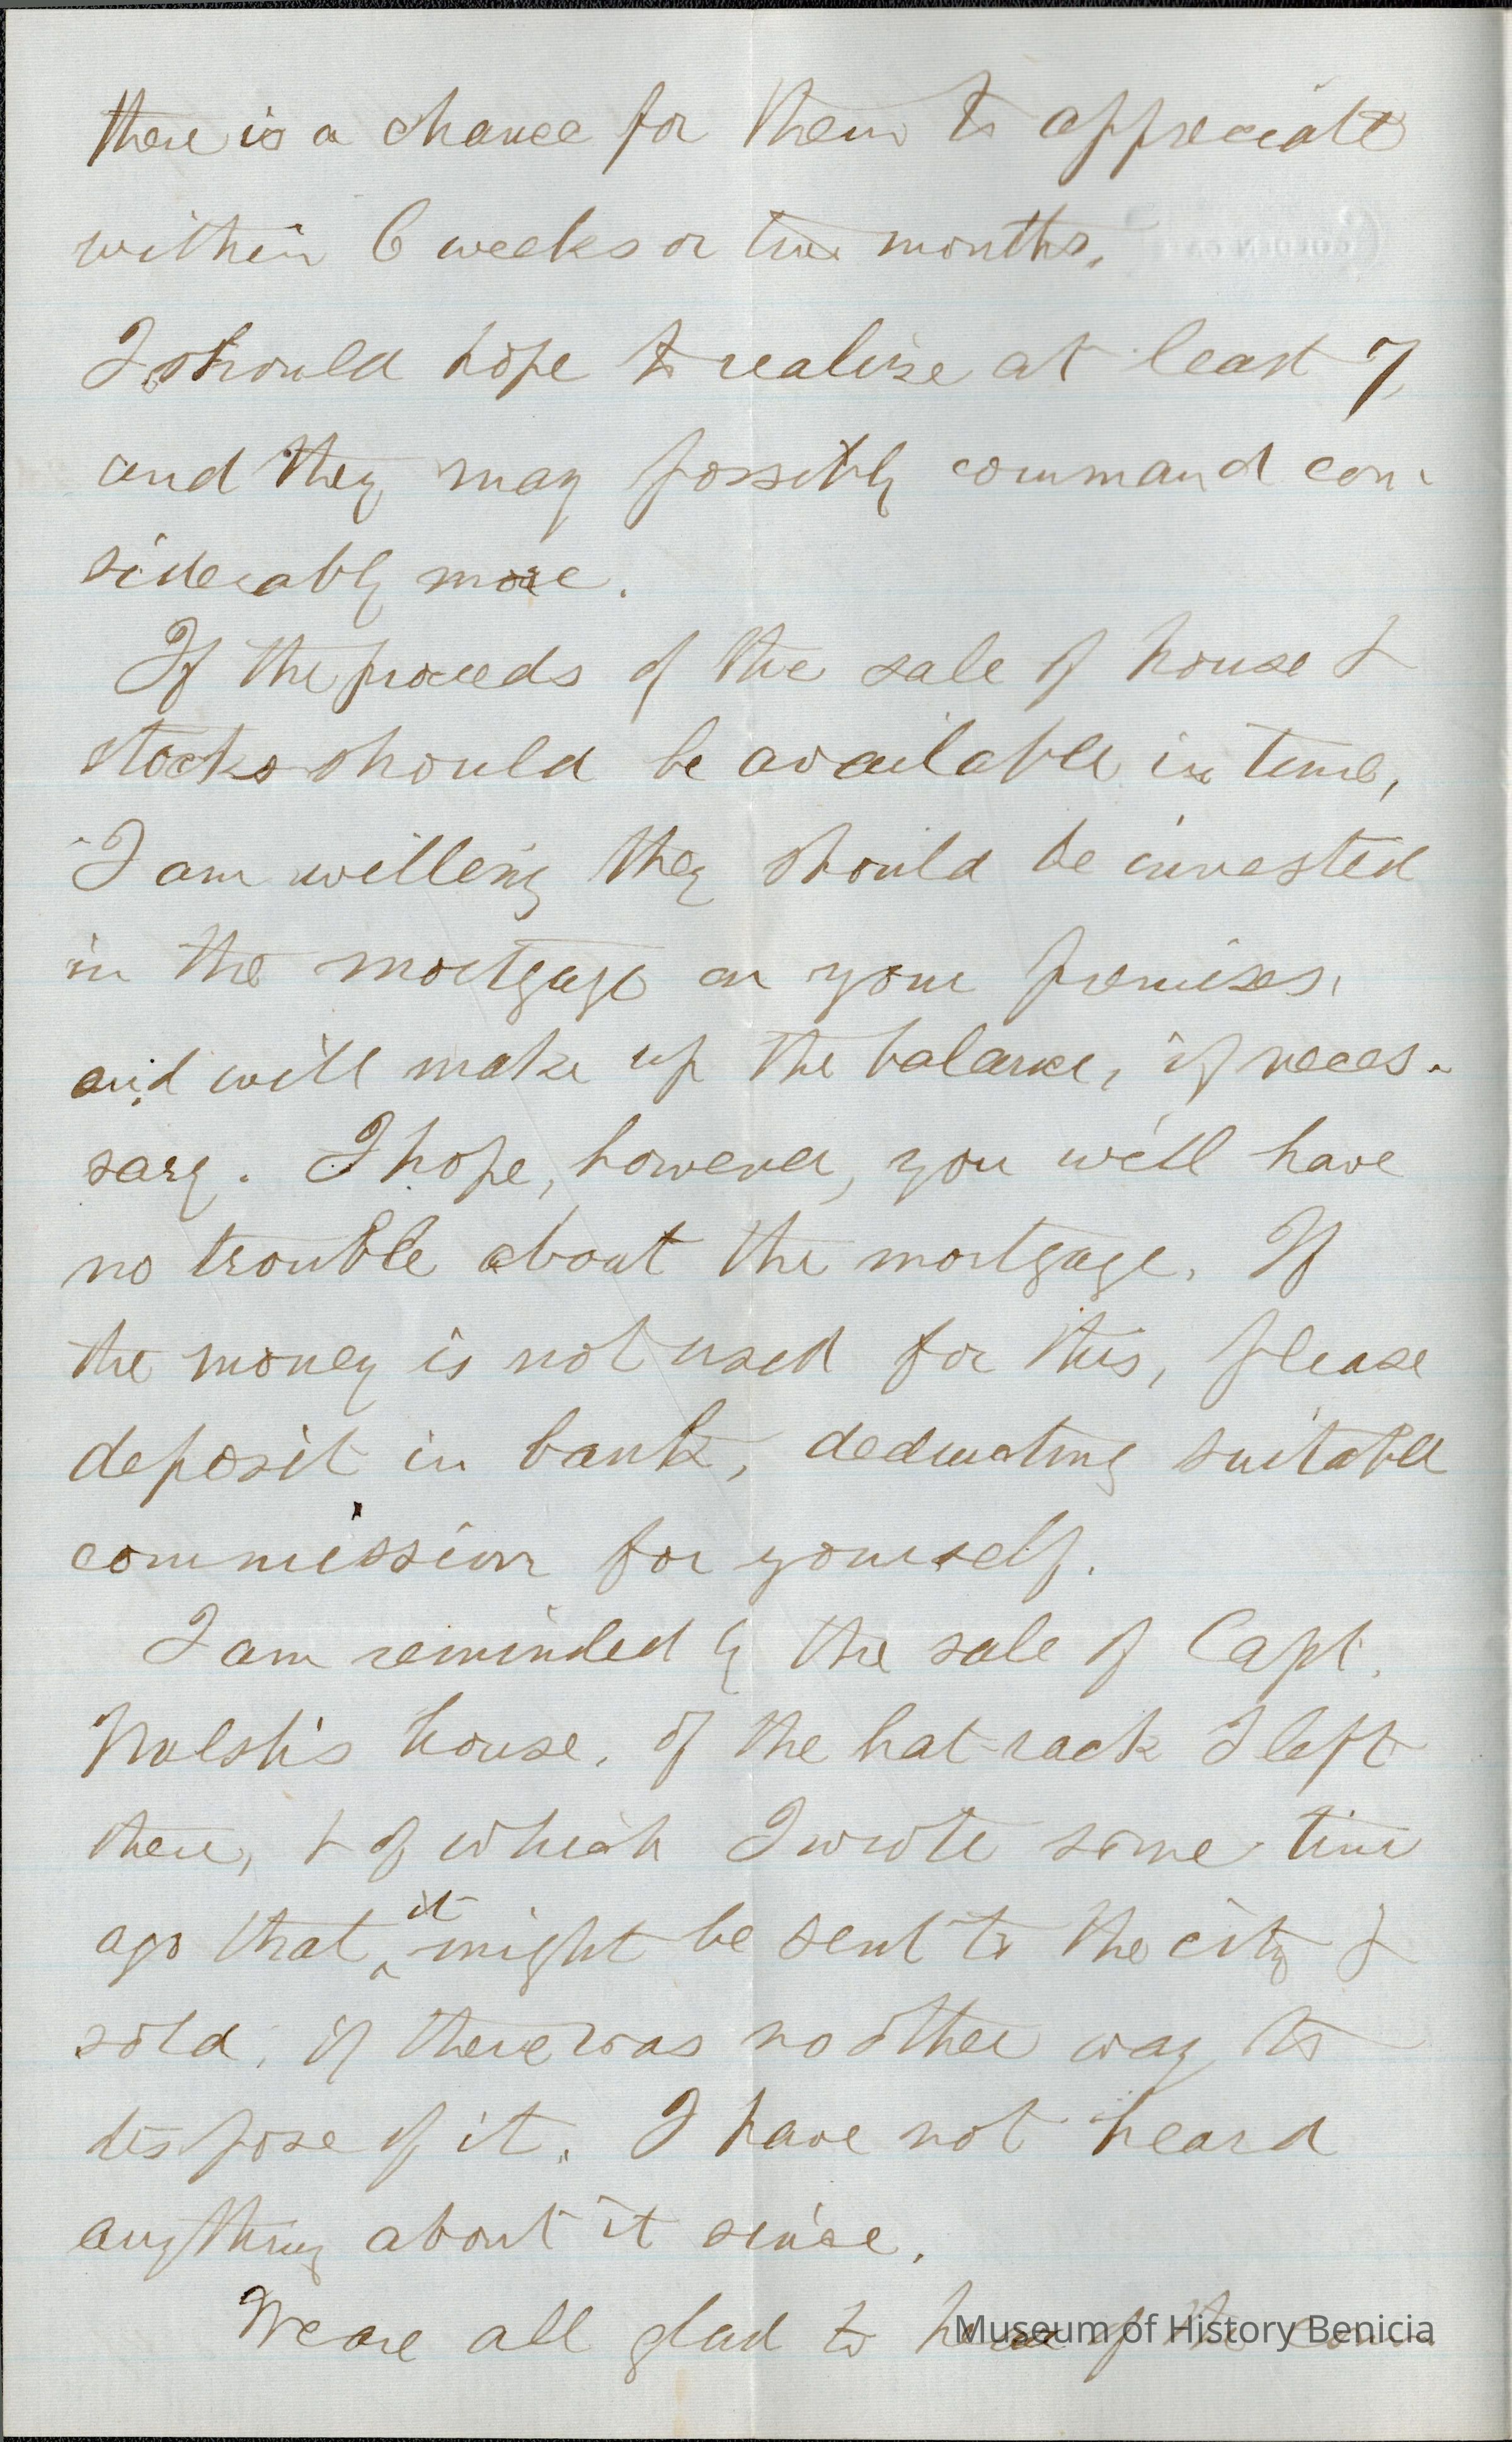 there is a chance for them to appreciate
within 6 weeks or two months.
I should hope to realize at least 7,
and they may possibly command con-
siderably more.
If the proceeds of the sale of house &
stocks should be available in time,
I am willing they should be invested
in the mortgage on your premises,
and will make up the balance, if neces-
sary. I hope, however, you will have
no trouble about the mortgage. If
the money is not used for this, please
deposit in bank, deducting suitable
commission for yourself.
I am reminded by the sale of Capt.
Walsh's house, of the hat-rack I left
there, & of which I wrote some time
ago that it might be sent to the city &
sold, if there was no other way to
dispose of it. I have not heard
anything about it since.
We are all glad to hear of the
Museum of History Benicia